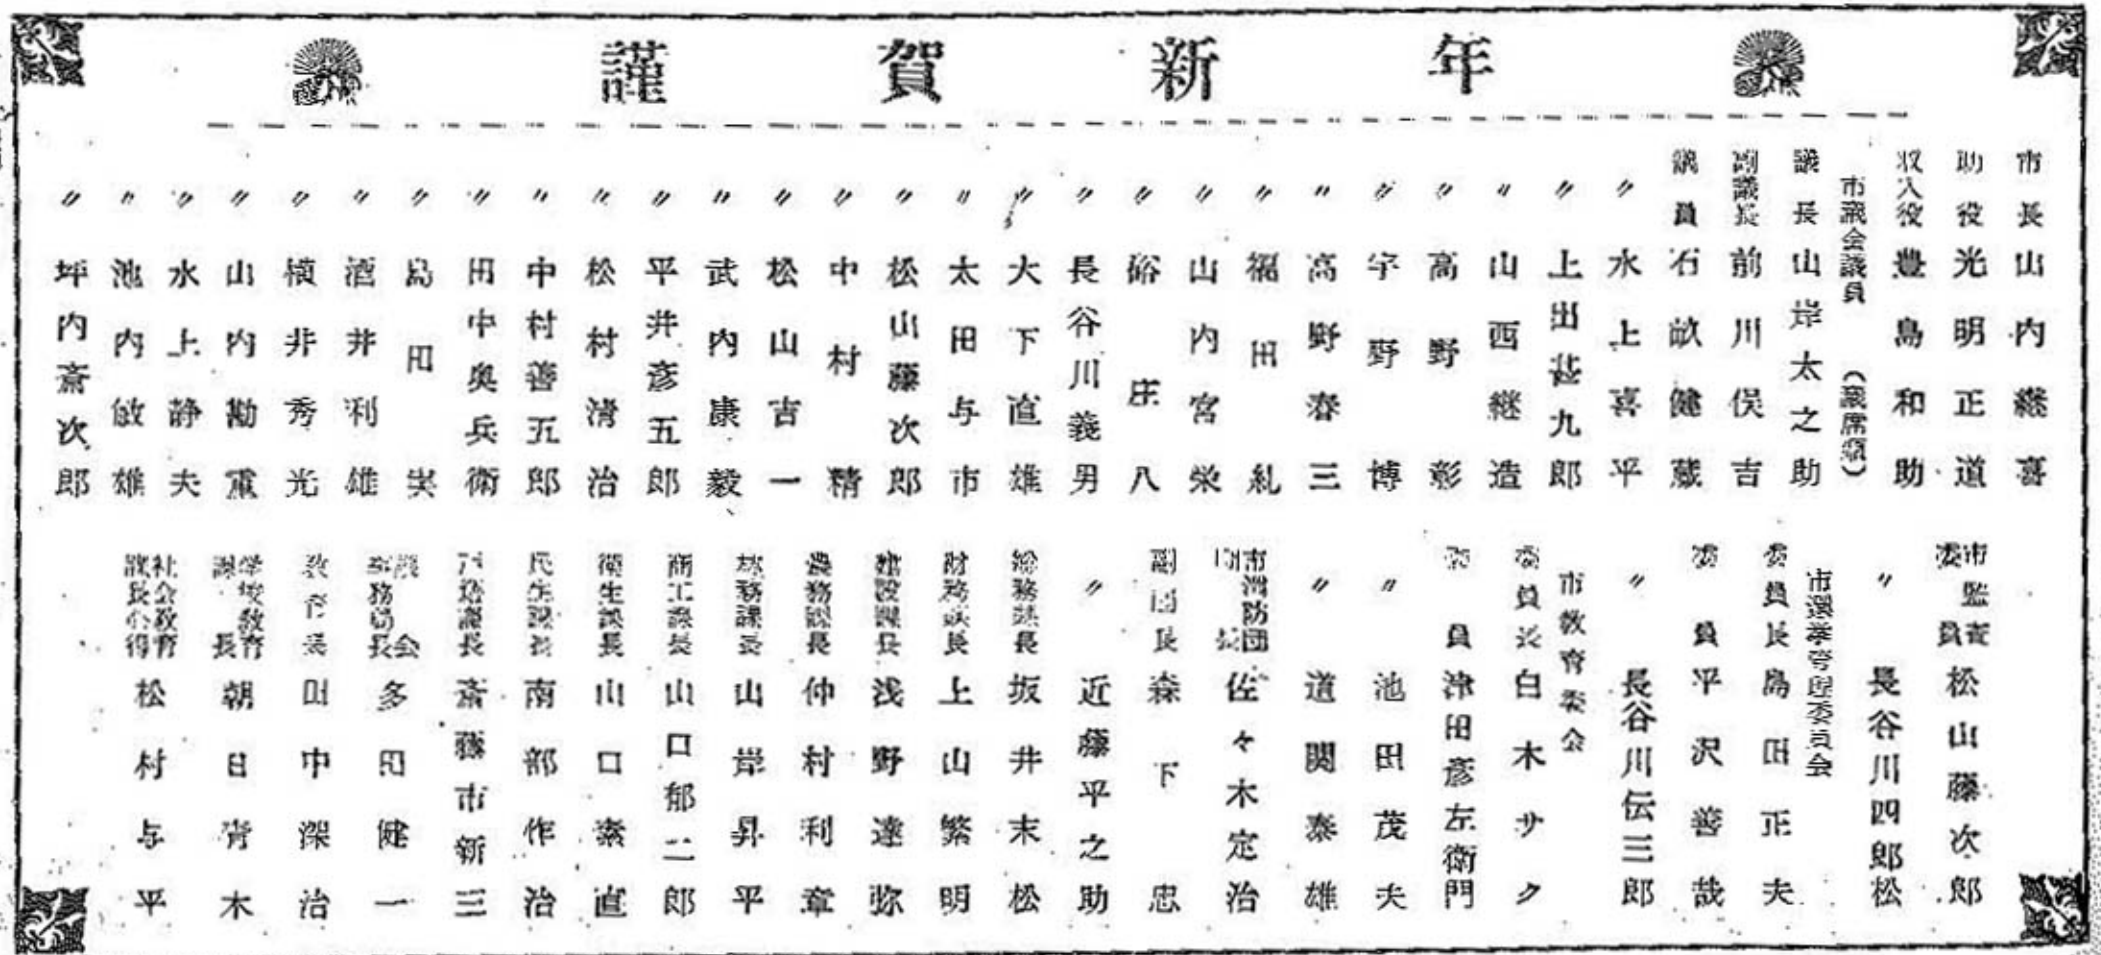 謹賀新年
市長 山内継喜
助役 光明正道
収入役 豊島和助
市議会議員 (議席順)
議長 山岸太之助
副議長 前川俣吉
議員 石畝健蔵
〃 水上喜平
〃 上出甚九郎
〃 山西継造
〃 高野彰
〃 宇野博
〃 高野春三
〃 福田糺
〃 山内宮栄
〃 硲庄八
〃 長谷川義男
〃 大下直雄
〃 太田与市
〃 松山藤次郎
〃 中村精
〃 松山吉一
〃 武内康毅
〃 平井彦五郎
〃 松村清治
〃 中村善五郎
〃 田中奥兵衛
〃 島田実
〃 酒井利雄
〃 横井秀光
〃 山内勘重
〃 水上静夫
〃 池内敏雄
〃 坪内斎次郎
市監査委員 松山藤次郎
〃 長谷川四郎松
市選挙管理委員会
委員長 島田正夫
委員 平沢善哉
〃 長谷川伝三郎
市教育委会
委員長 白木サク
委員 津田彦左衛門
〃 池田茂夫
〃 道関泰雄
市消防団団長 佐々木定治
副団長 森下忠
〃 近藤平之助
総務課長 坂井末松
財務課長 上山繁明
建設課長 浅野達弥
農務課長 仲村利章
林務課長 山岸昇平
商工課長 山口郁二郎
衛生課長 山口素直
民生課長 南部作治
戸籍課長 斎藤市新三
議会事務局長 多田健一
教育長 田中深治
学校教育課長 朝日青木
社会教育課長心得 松村与平